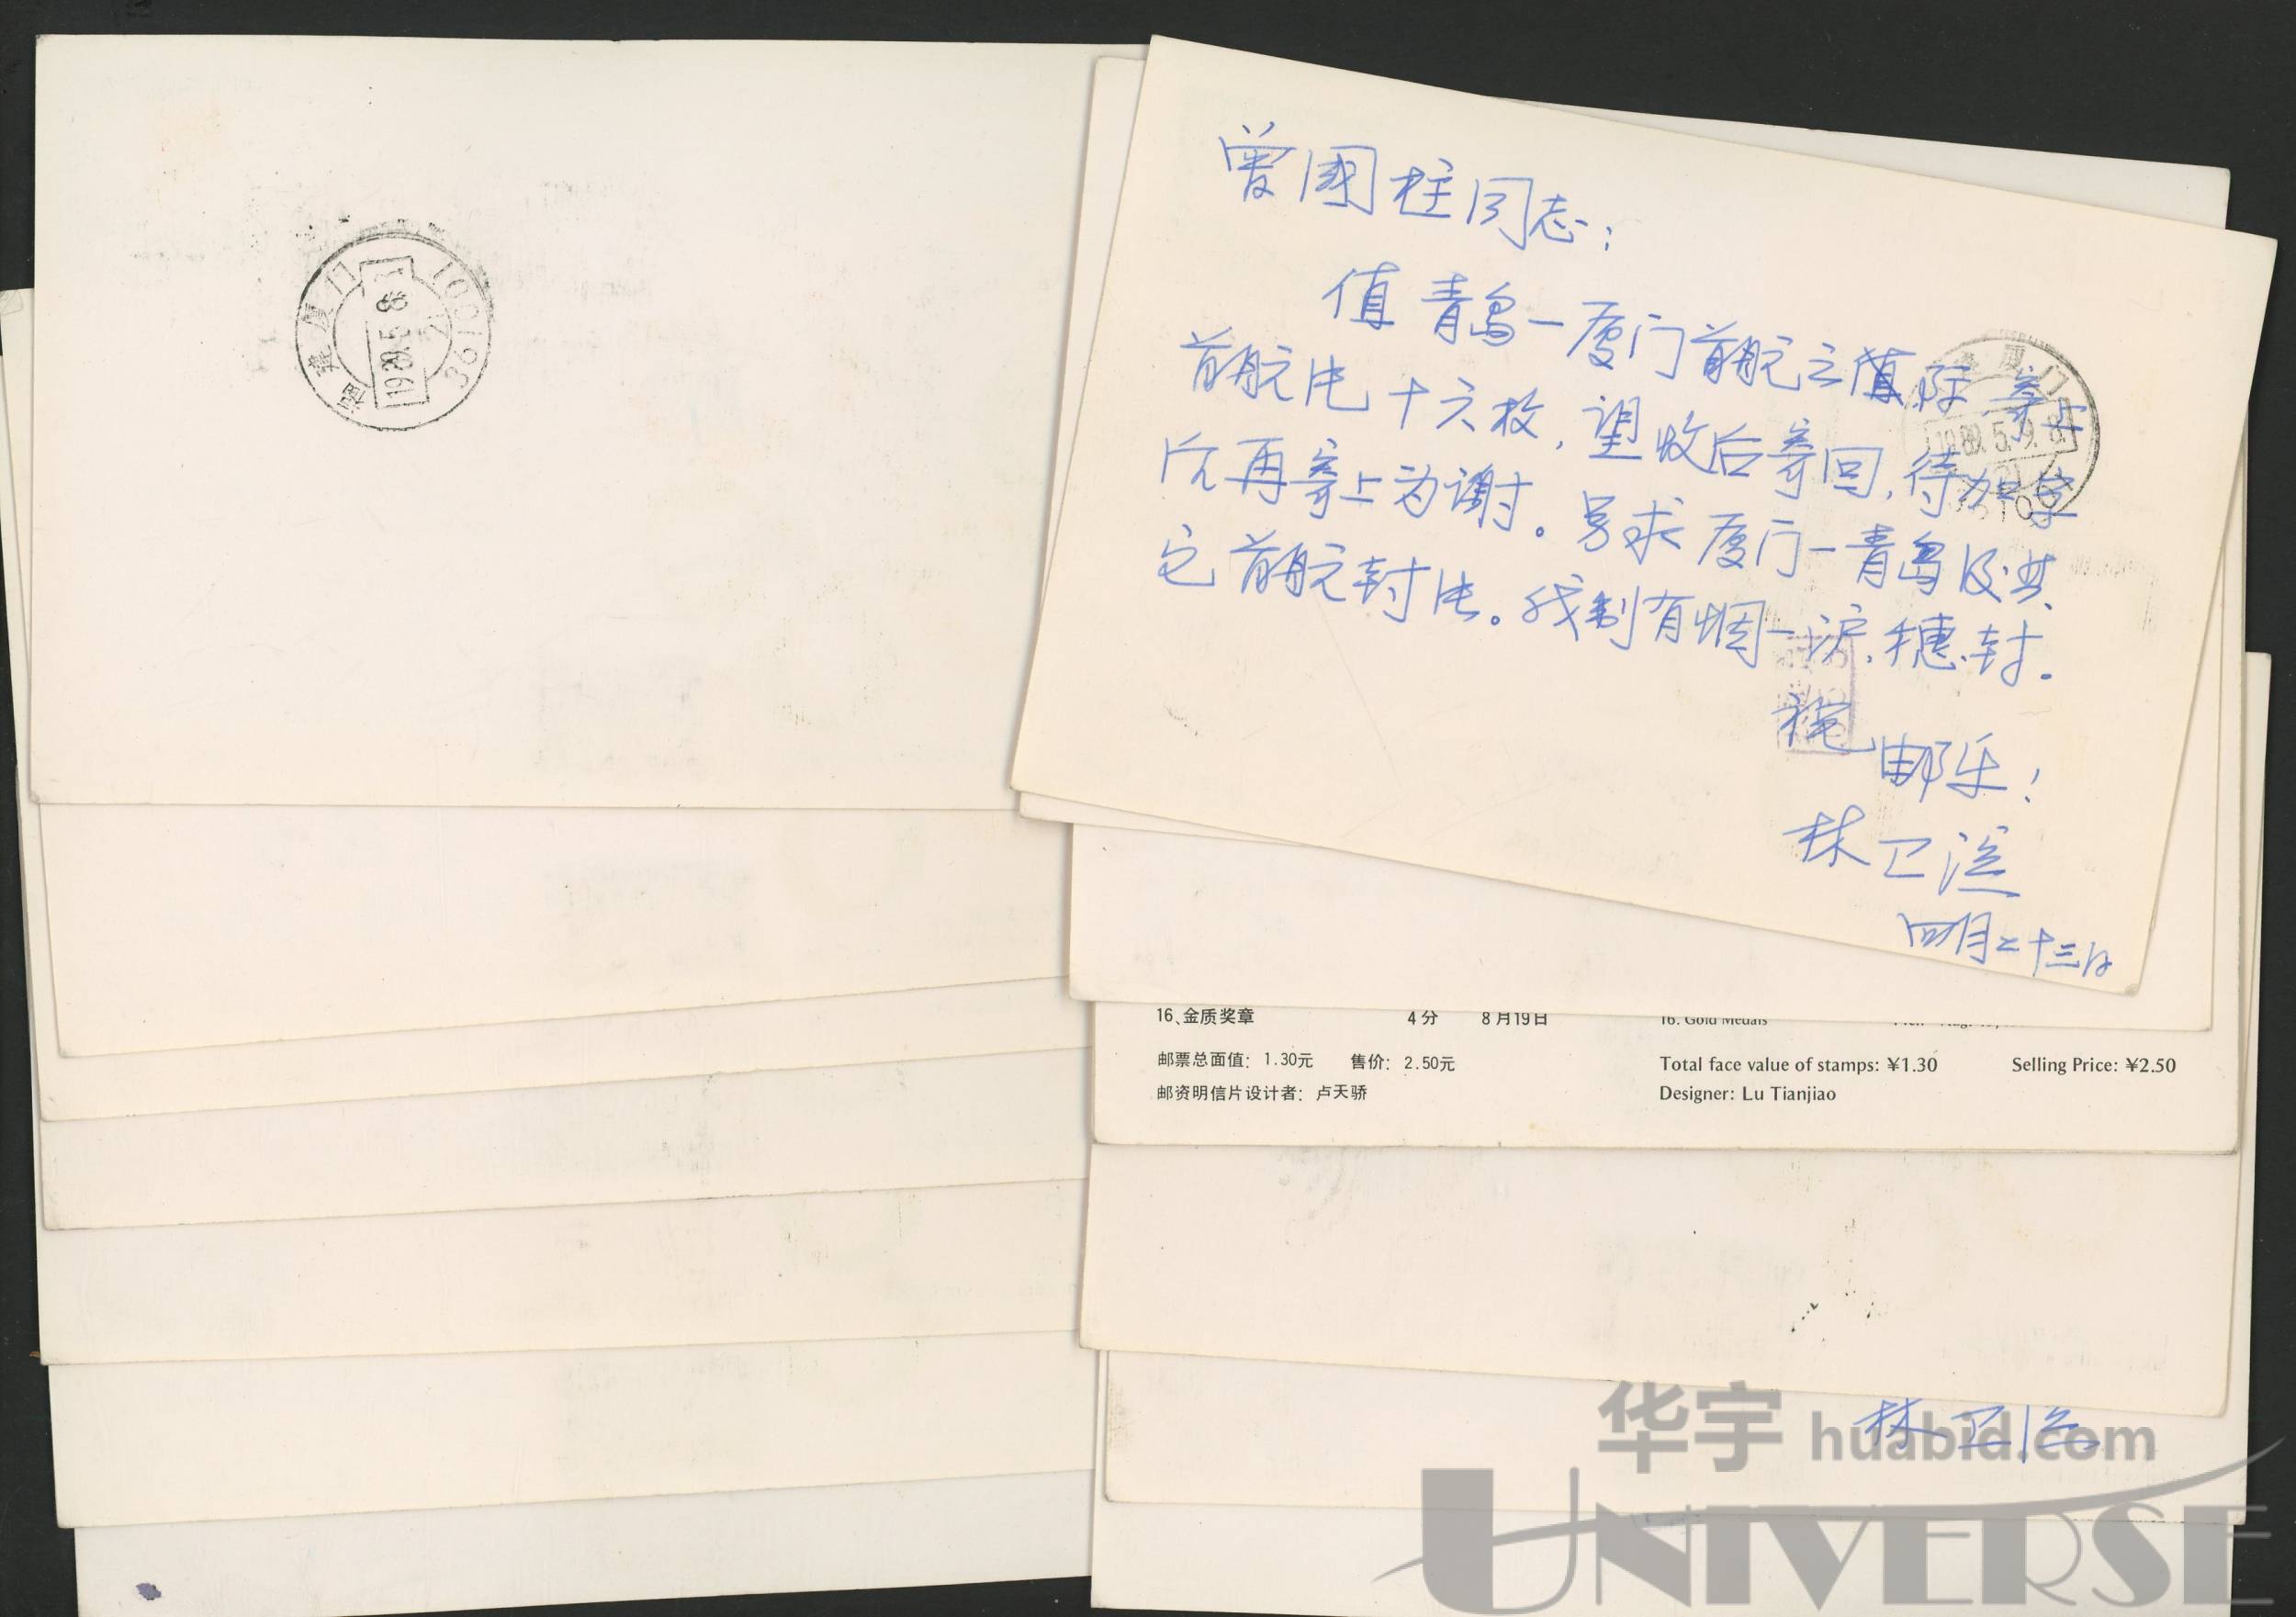 福建厦门
361001
1989.5.8
曾國柱同志:
值青岛—厦门首航之际,寄上
首航片十六枚,望收后寄回,待加字
后再寄上为谢。另求厦门—青岛及其
它首航封片。我制有烟—沪、穗封。
祝
邮乐!
林卫滨
四月二十三日
厦门
1989.5.9.8
16、金质奖章 4分 8月19日 16. Gold Medals
邮票总面值: 1.30元 售价: 2.50元 Total face value of stamps: ¥1.30 Selling Price: ¥2.50
邮资明信片设计者: 卢天骄 Designer: Lu Tianjiao
林卫
华宇 huabid.com
UNIVERSE